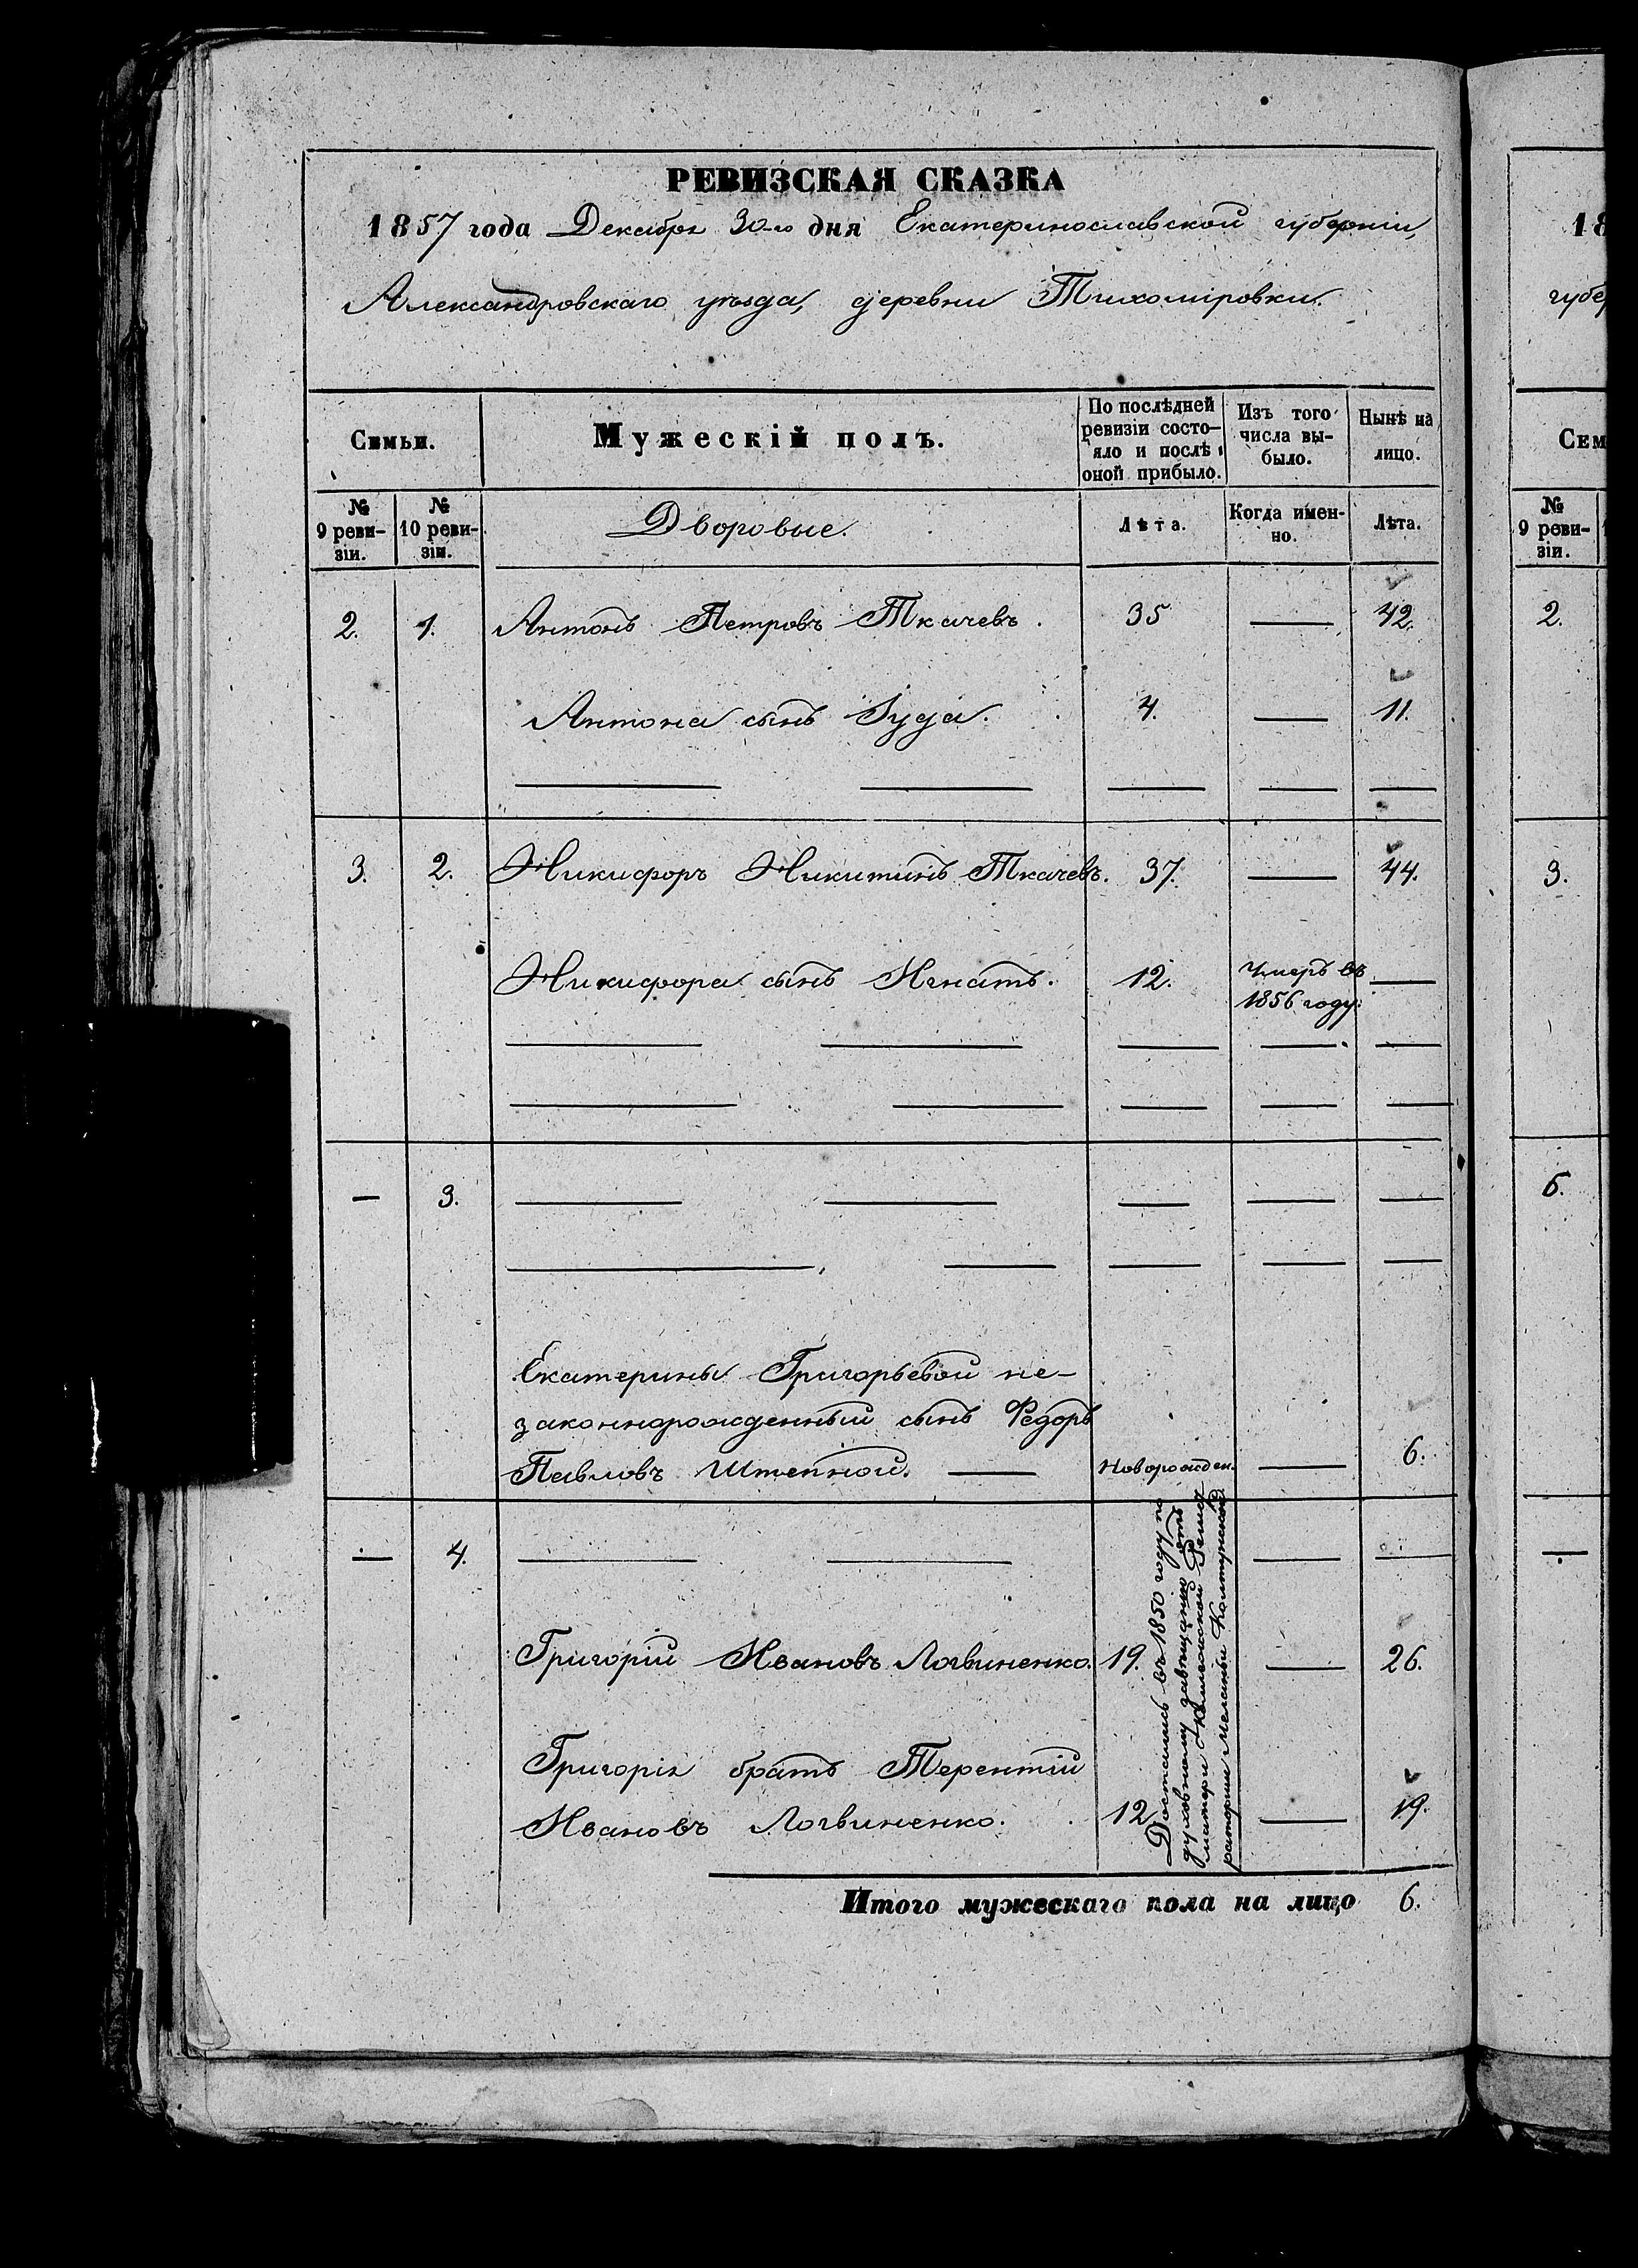 РЕВИЗСКАЯ СКАЗКА
1857 года Декабря 30-го дня Екатеринославской губерніи,
Александровскаго уѣзда, деревни Тихоміровки.
Семьи.
Мужескій полъ.
По послѣдней ревизіи состо-
яло и послѣ
оной прибыло.
Изъ того числа вы-
было.
Нынѣ на лицо.
№ 9 реви-
зіи.
№ 10 реви-
зіи.
Дворовые.
Лѣта.
Когда имен-
но.
Лѣта.
2. 1. Антонъ Петровъ Ткачевъ. 35 — 42.
Антона сынъ Іуда. 4. — 11.
3. 2. Никифоръ Никитинъ Ткачевъ. 37. — 44.
Никифора сынъ Игнатъ. 12. Умеръ въ —
1856 году.
— 3.
Екатерины Григорьевой не-
законнорожденный сынъ Федоръ
Павловъ Штепной. — Новорожден. — 6.
— 4.
Григорій Ивановъ Логвиненко. 19. — 26.
Григорія братъ Терентій
Ивановъ Логвиненко. 12. — 19.
Достались въ 1850 году по
духовному завѣщанію отъ
матери
Меланьи
Итого мужескаго пола на лицо 6.
18
губер
Сем
№ 9 реви-
зіи.
2.
3.